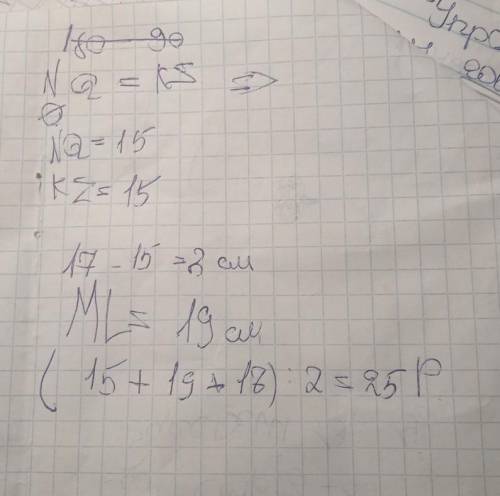 180 — 90
NQ = KΣ ⇒
NQ = 15
KΣ = 15
17 - 15 = 2 см
ML = 19 см
( 15 + 19 + 18) : 2 = 25 P
Упро